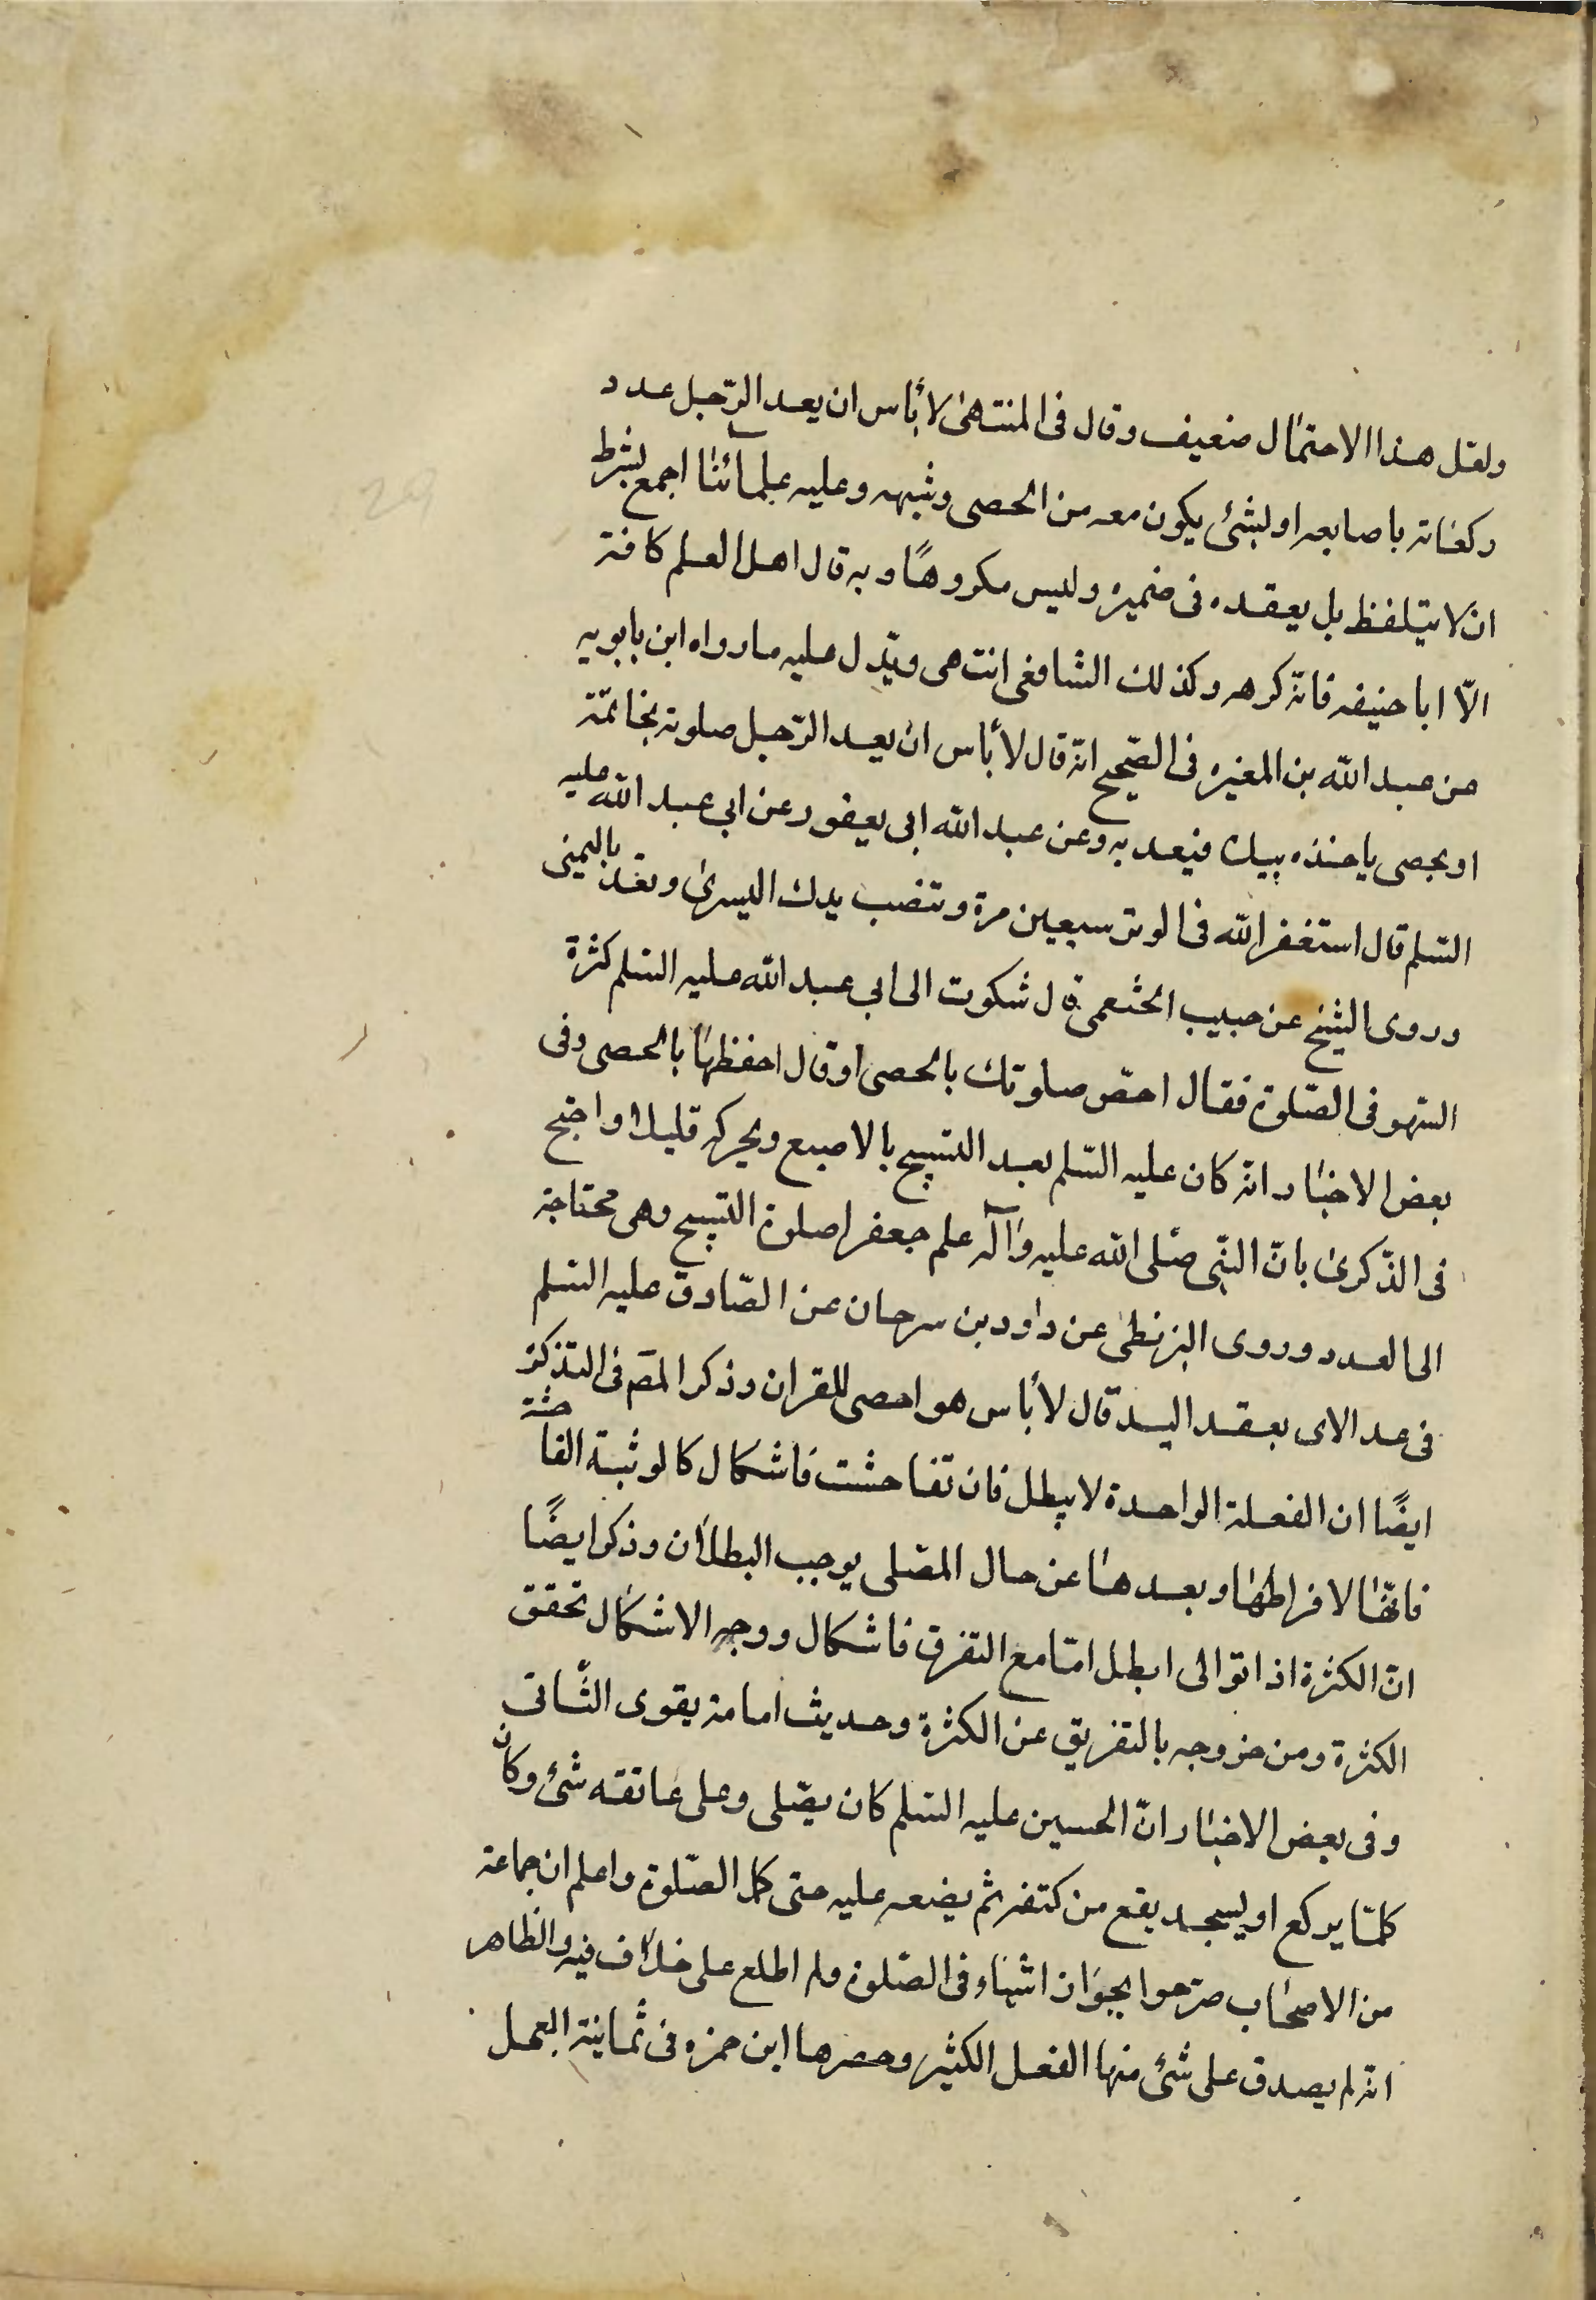 ولعل هذا الاحتمال ضعيف وقال فى المنتهىٰ لا بأس ان يعد الرّجل عدد
ركعاته باصابعه او بشئ يكون معه من الحصى وشبهه وعليه علمآئنا اجمع بشرط
ان لا يتلفظ بل يعقده فى ضميره وليس مكروهًا وبه قال اهل العلم كافة
الّا ابا حنيفه فانّه كرهه وكذلك الشافعى انتهى ويدل عليه ما رواه ابن بابويه
عن عبد الله بن المغيره فى الصّحيح انّه قال لا بأس ان يعد الرّجل صلوته بخاتمة
او بحصى ياخذه بيده فيعد به وعن عبد الله ابى يعفور عن ابى عبد الله عليه
السّلم قال استغفر الله فى الوتر سبعين مرة وتنصب يدك اليسرىٰ وتعد باليمنى
وروى الشيخ عن حبيب الخثعمى قال شكوت الى ابى عبد الله عليه السّلم كثرة
السّهو فى الصّلوة فقال احصّ صلوتك بالحصى او قال احفظها بالحصى وفى
بعض الاخبار انّه كان عليه السّلم يعد التسبيح بالاصبع ويحركه قليلا واحتج
فى الذّكرىٰ بانّ النّبى صلّى الله عليه وآله علم جعفرا صلوة التسبيح وهى محتاجة
الى العدد وروى البزنطى عن داود بن سرحان عن الصّادق عليه السّلم
فى عد الاى بعقد اليد قال لا بأس هو احصى للقران وذكر المصّ فى التذكرة
ايضًا ان الفعلة الواحدة لا يبطل فان تفاحشت فاشكال كالوثبة الفاحشة
فانّها لافراطها وبعدها عن حال المصّلى يوجب البطلان وذكر ايضًا
انّ الكثرة اذا توالى ابطل امّا مع التفرق فاشكال ووجه الاشكال تحقق
الكثرة ومن خروجه بالتفريق عن الكثرة وحديث امامة يقوى الثّانى
وفى بعض الاخبار انّ الحسين عليه السّلم كان يصّلى وعلى عاتقه شئ وكان
كلمّا يركع او يسجد يقع من كتفه ثم يضعه عليه حتى كمل الصّلوة واعلم ان جماعة
من الاصحاب صرّحوا بجواز اشياء فى الصّلوة ولم اطلع على خلاف فيه والظاهر
انّه لم يصدق على شئ منها الفعل الكثير وحصرها ابن حمزه فى ثمانية العمل